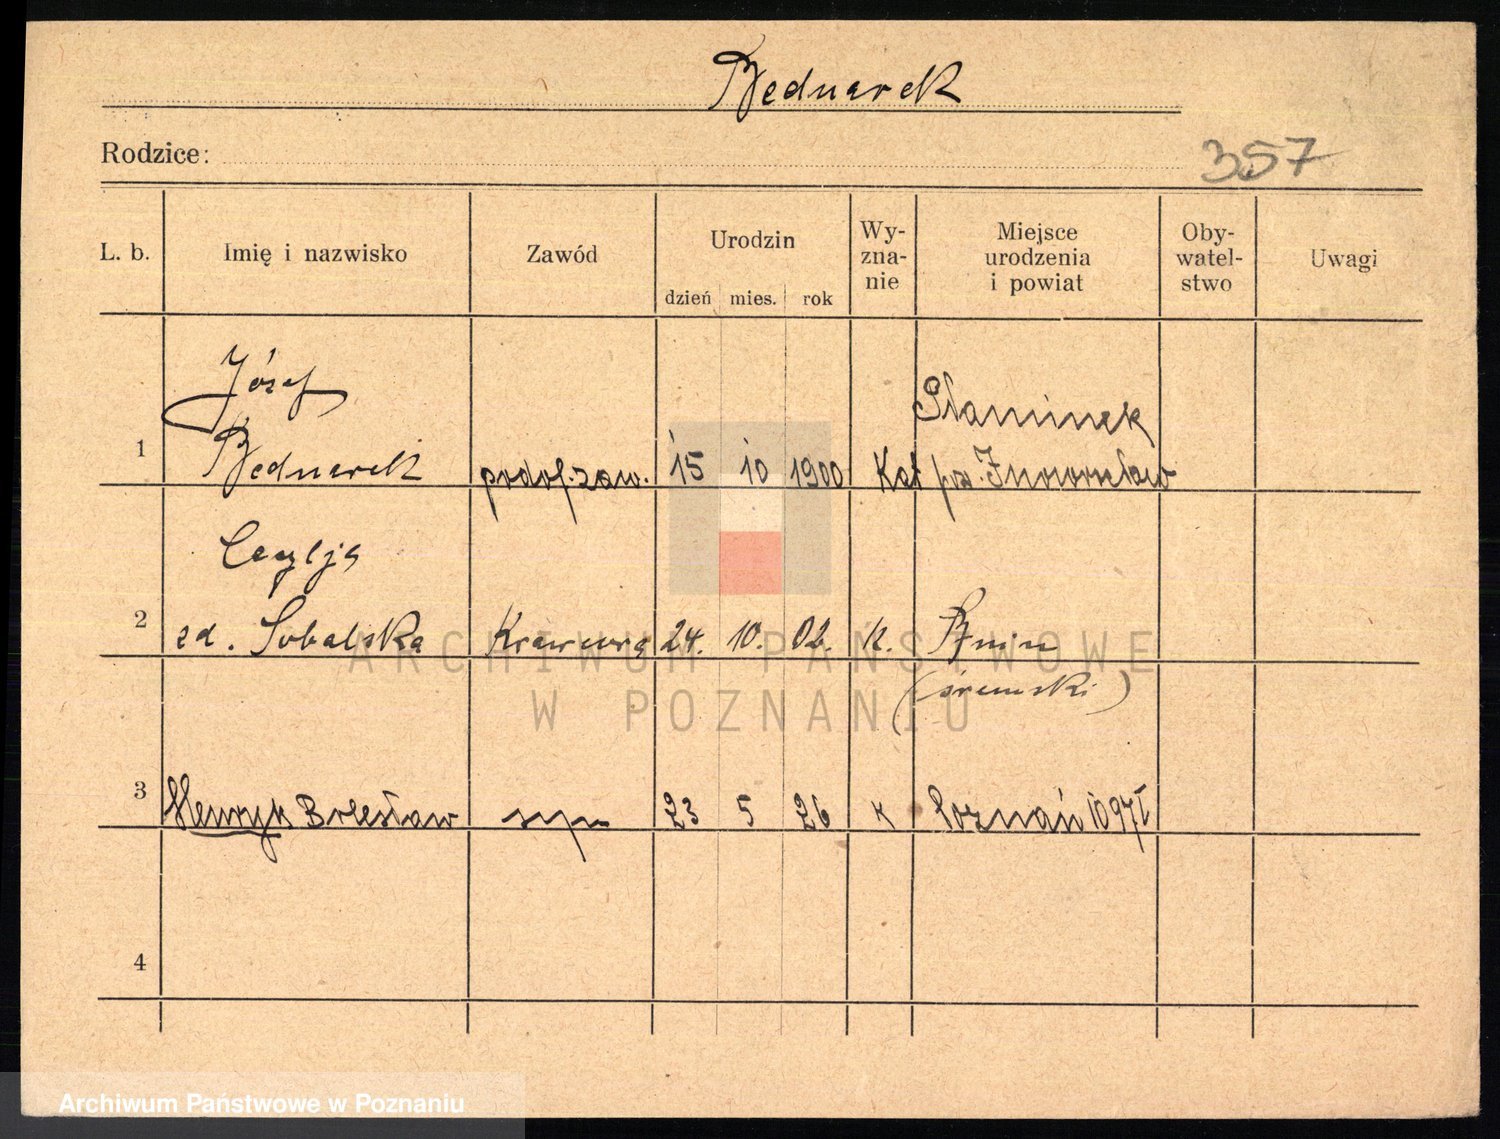 Bednarek
Rodzice:
357
L. b.
Imię i nazwisko
Zawód
Urodzin
dzień mies. rok
Wy-
zna-
nie
Miejsce
urodzenia
i powiat
Oby-
watel-
stwo
Uwagi
Józef
1 Bednarek podof. zaw. 15 10 1900 Kat pow. Inowrocław
Cecylja
2 zd. Sobalska Krawcowa 24. 10. 02. K. Bnin
(śremski)
3 Henryk Bolesław syn 23 5 26 K Poznań
4
ARCHIWUM PAŃSTWOWE
W POZNANIU
Archiwum Państwowe w Poznaniu